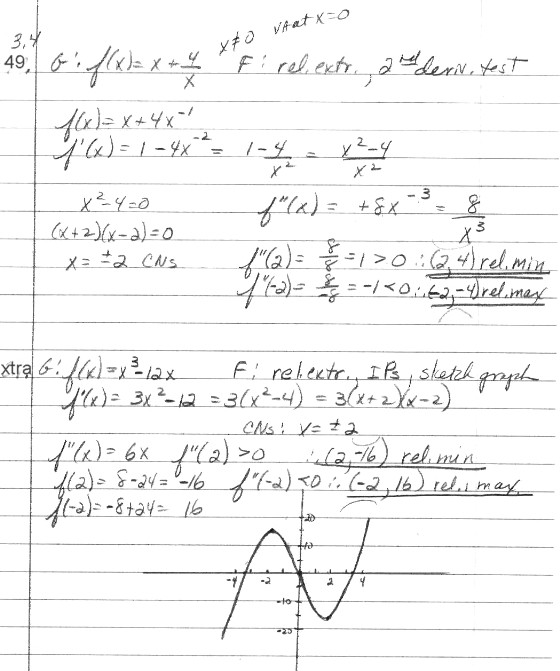 3.4
49. G: f(x) = x + 4/x   x≠0   VA at x=0   F: rel. extr., 2nd deriv. test
f(x) = x + 4x^-1
f'(x) = 1 - 4x^-2 = 1 - 4/x^2 = (x^2-4)/x^2
x^2-4=0   f''(x) = +8x^-3 = 8/x^3
(x+2)(x-2)=0
x = ±2 CNs   f''(2) = 8/8 = 1 > 0 ∴ (2,4) rel. min
f''(-2) = 8/-8 = -1 < 0 ∴ (-2,-4) rel. max
xtra G: f(x) = x^3-12x   F: rel. extr., IPs, sketch graph
f'(x) = 3x^2-12 = 3(x^2-4) = 3(x+2)(x-2)
CNs: x = ±2
f''(x) = 6x   f''(2) > 0   ∴ (2,-16) rel. min
f(2) = 8-24 = -16   f''(-2) < 0 ∴ (-2, 16) rel. max.
f(-2) = -8+24 = 16
20
10
-4 -2 2 4
-10
-20